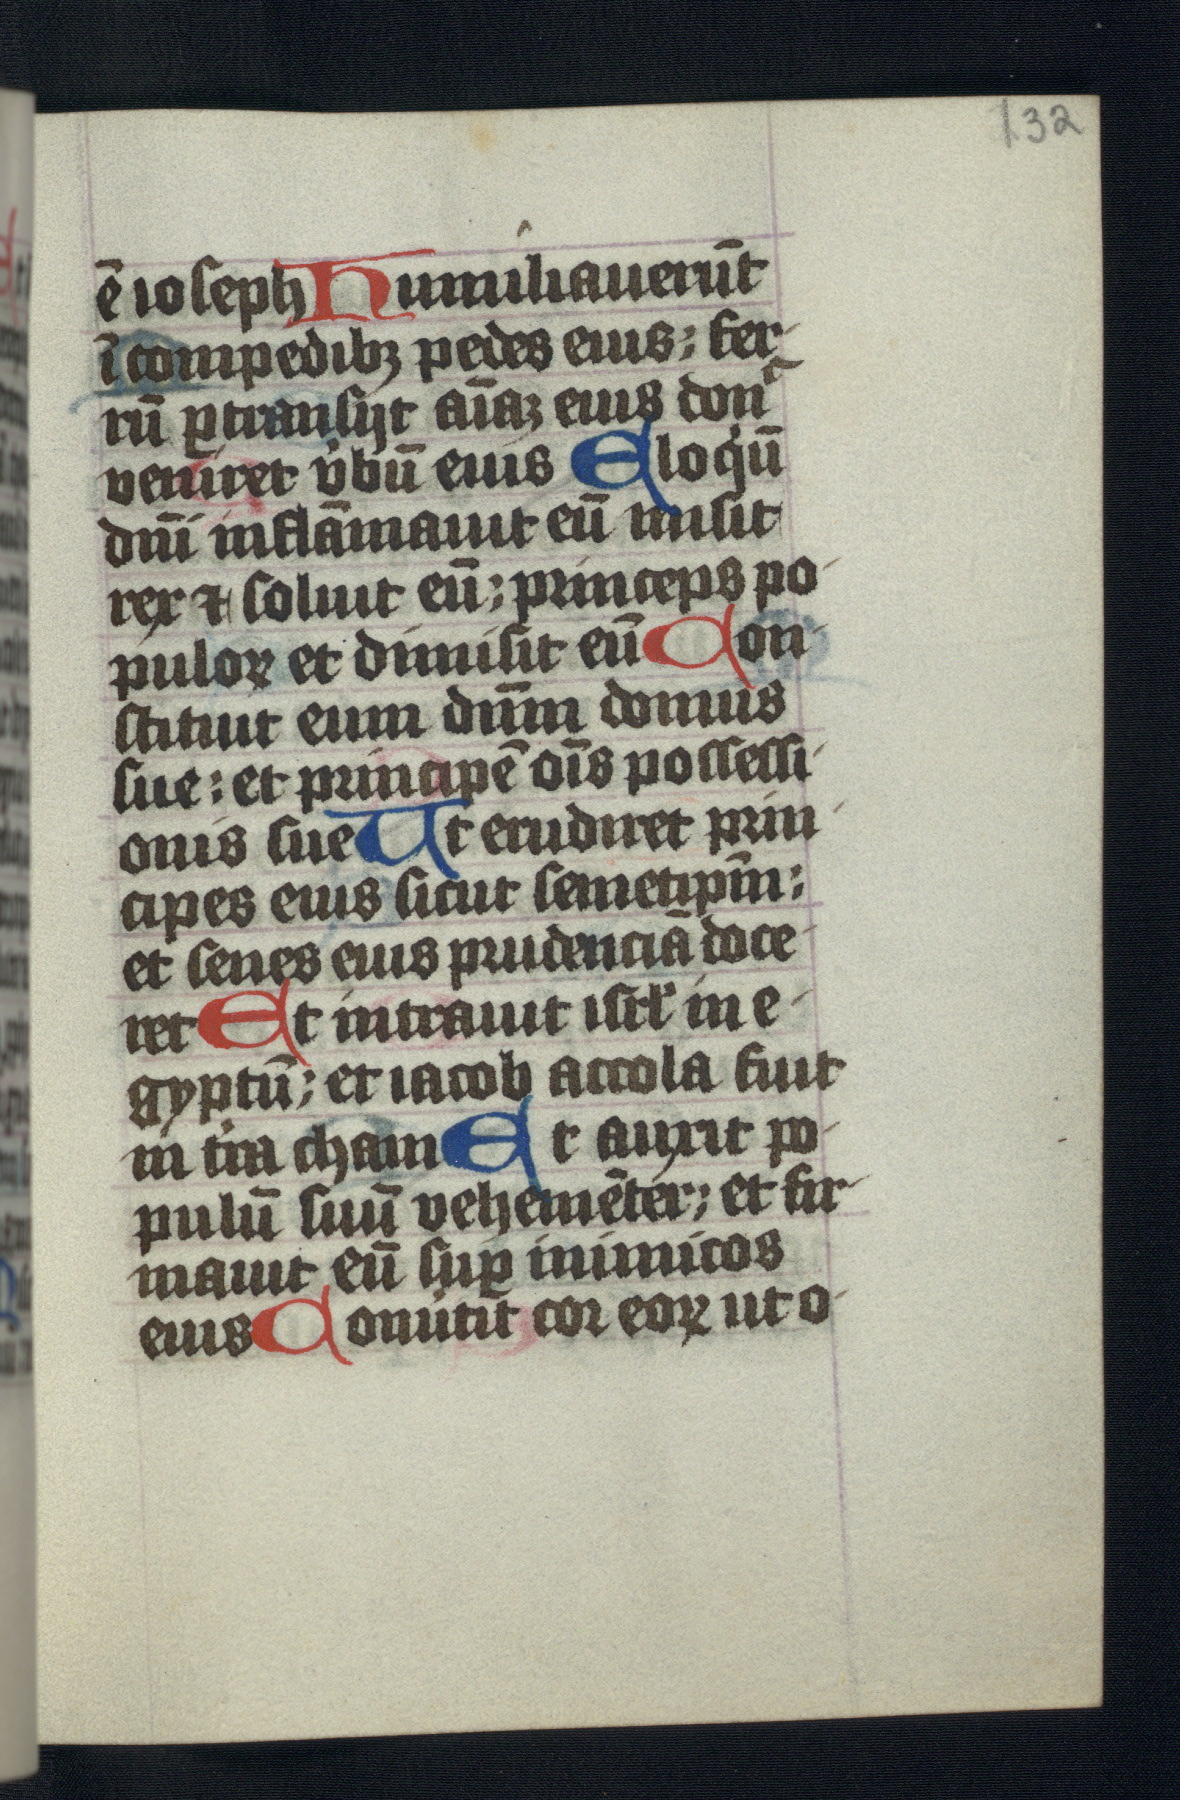 132
ē ioseph Humiliauerūt
ī compedibꝫ pedes eius; fer-
rū ꝑtransijt aīaꝫ eius donᶜ
veniret v̓bū eius Eloqͥū
dn̄i inflāmauit eū misit
rex ⁊ soluit eū; princeps po-
puloꝝ et dimisit eū Con-
stituit eum dn̄m domus
sue; et principē oīs possessi-
onis sue Ut erudiret prin-
cipes eius sicut semetip̄m;
et senes eius prudenciā doce-
ret Et intrauit isrl̓ in e-
gyptū; et iacob accola fuit
in t̓ra cham Et auxit po-
pulū suū vehemēter; et fir-
mauit eū suꝑ inimicos
eius Conu̓tit cor eoꝝ ut o-